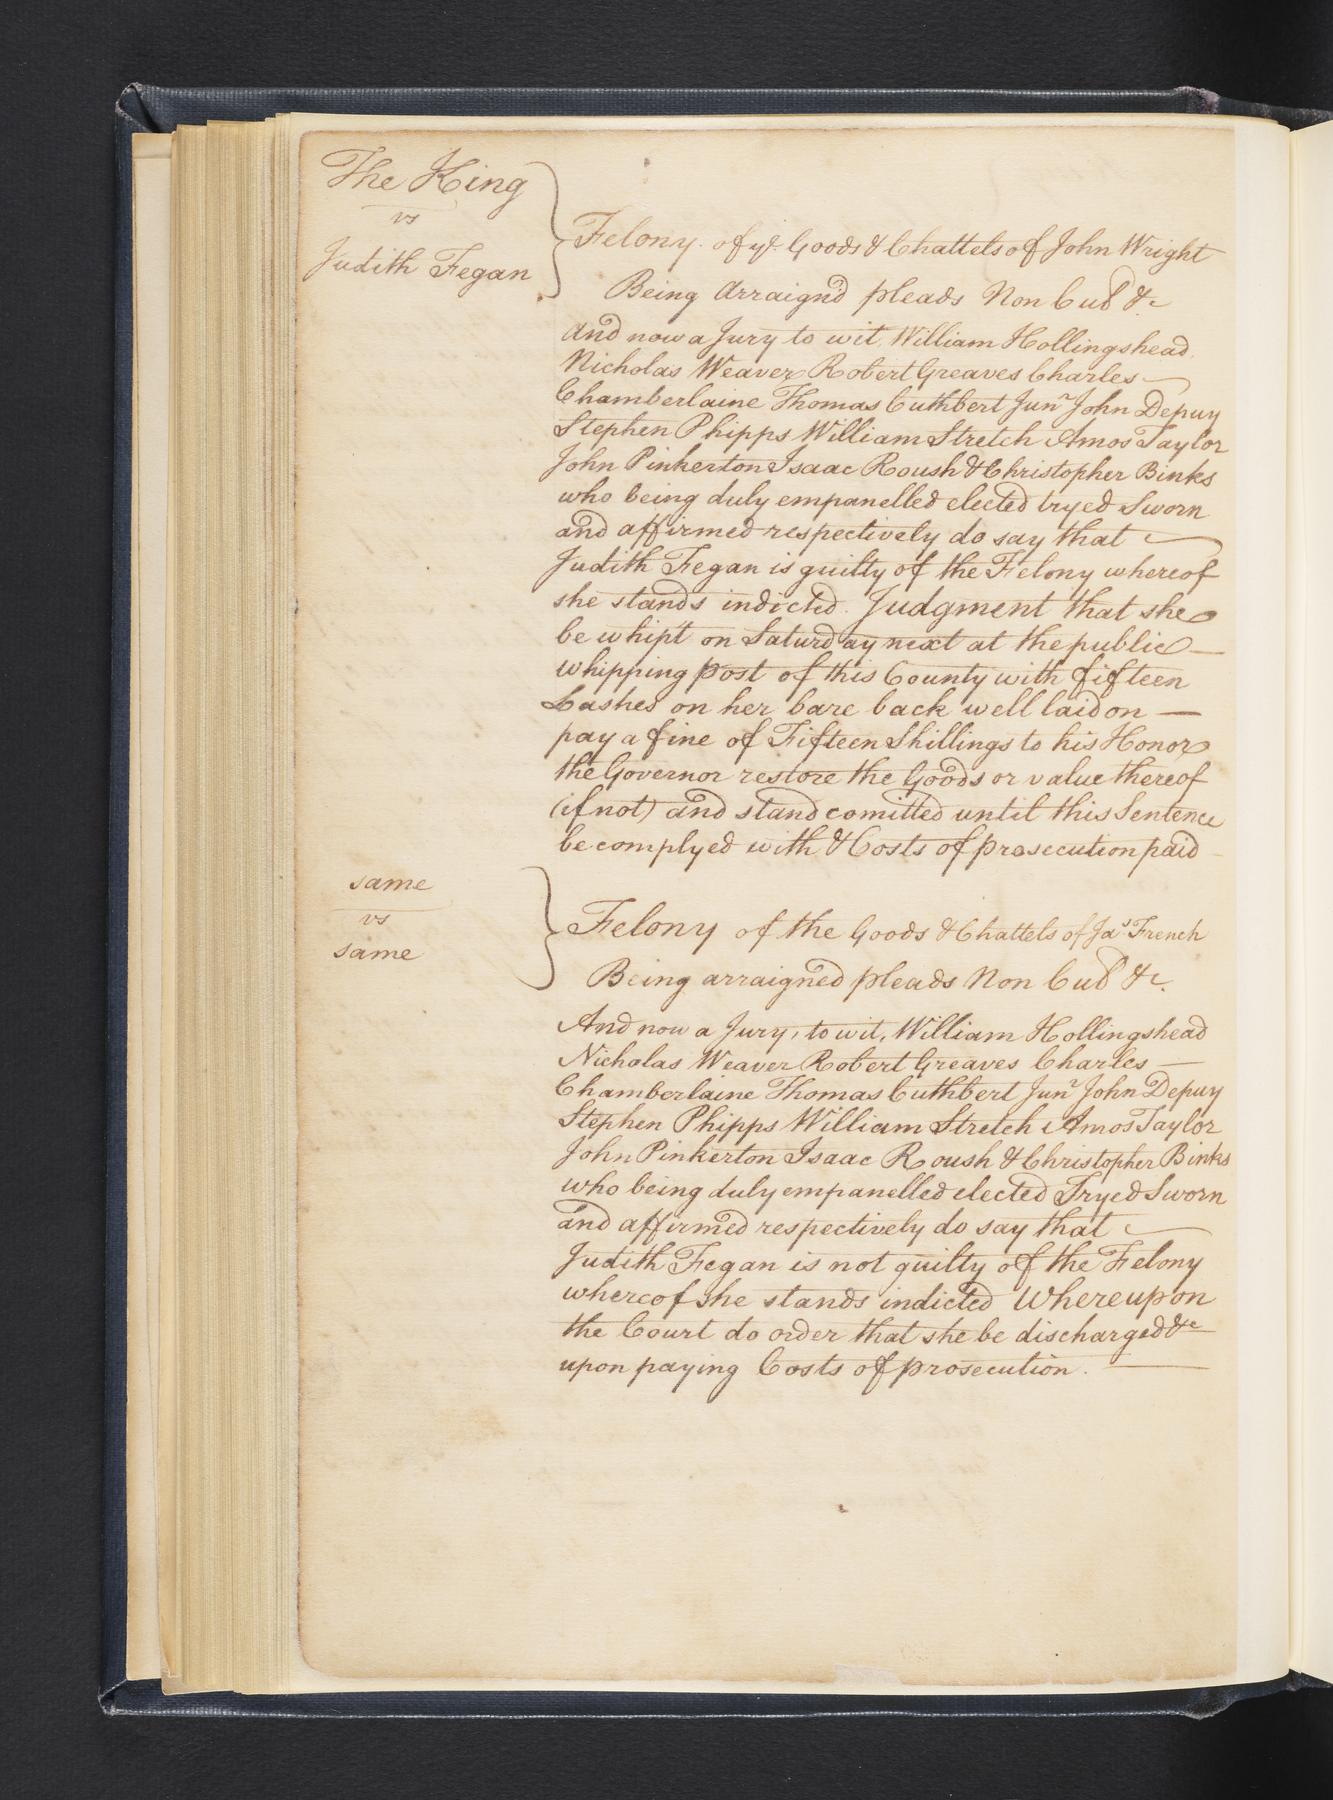 The King
vs
Judith Fegan
Felony. of ye. Goods & Chattels of John Wright
Being arraign'd pleads Non Cul &c
and now a Jury to wit, William Hollingshead
Nicholas Weaver Robert Greaves Charles
Chamberlaine Thomas Cuthbert Junr John Depuy
Stephen Phipps William Stretch Amos Taylor
John Pinkerton Isaac Roush & Christopher Binks
who being duly empanelled elected tryed Sworn
and affirmed respectively do say that
Judith Fegan is guilty of the Felony whereof
she stands indicted. Judgment that she
be whipt on Saturday next at the public
whipping post of this County with fifteen
Lashes on her bare back well laid on —
pay a fine of Fifteen Shillings to his Honor
the Governor restore the Goods or value thereof
(if not) and stand comitted until this Sentence
be complyed with & Costs of prosecution paid
same
vs
same
Felony of the Goods & Chattels of Jas French
Being arraigned pleads Non Cul &c.
And now a Jury, to wit, William Hollingshead
Nicholas Weaver Robert Greaves Charles —
Chamberlaine Thomas Cuthbert Junr John Depuy
Stephen Phipps William Stretch Amos Taylor
John Pinkerton Isaac Roush & Christopher Binks
who being duly empanelled elected Tryed Sworn
and affirmed respectively do say that
Judith Fegan is not guilty of the Felony
whereof she stands indicted Whereupon
the Court do order that she be discharged &c
upon paying Costs of prosecution. —